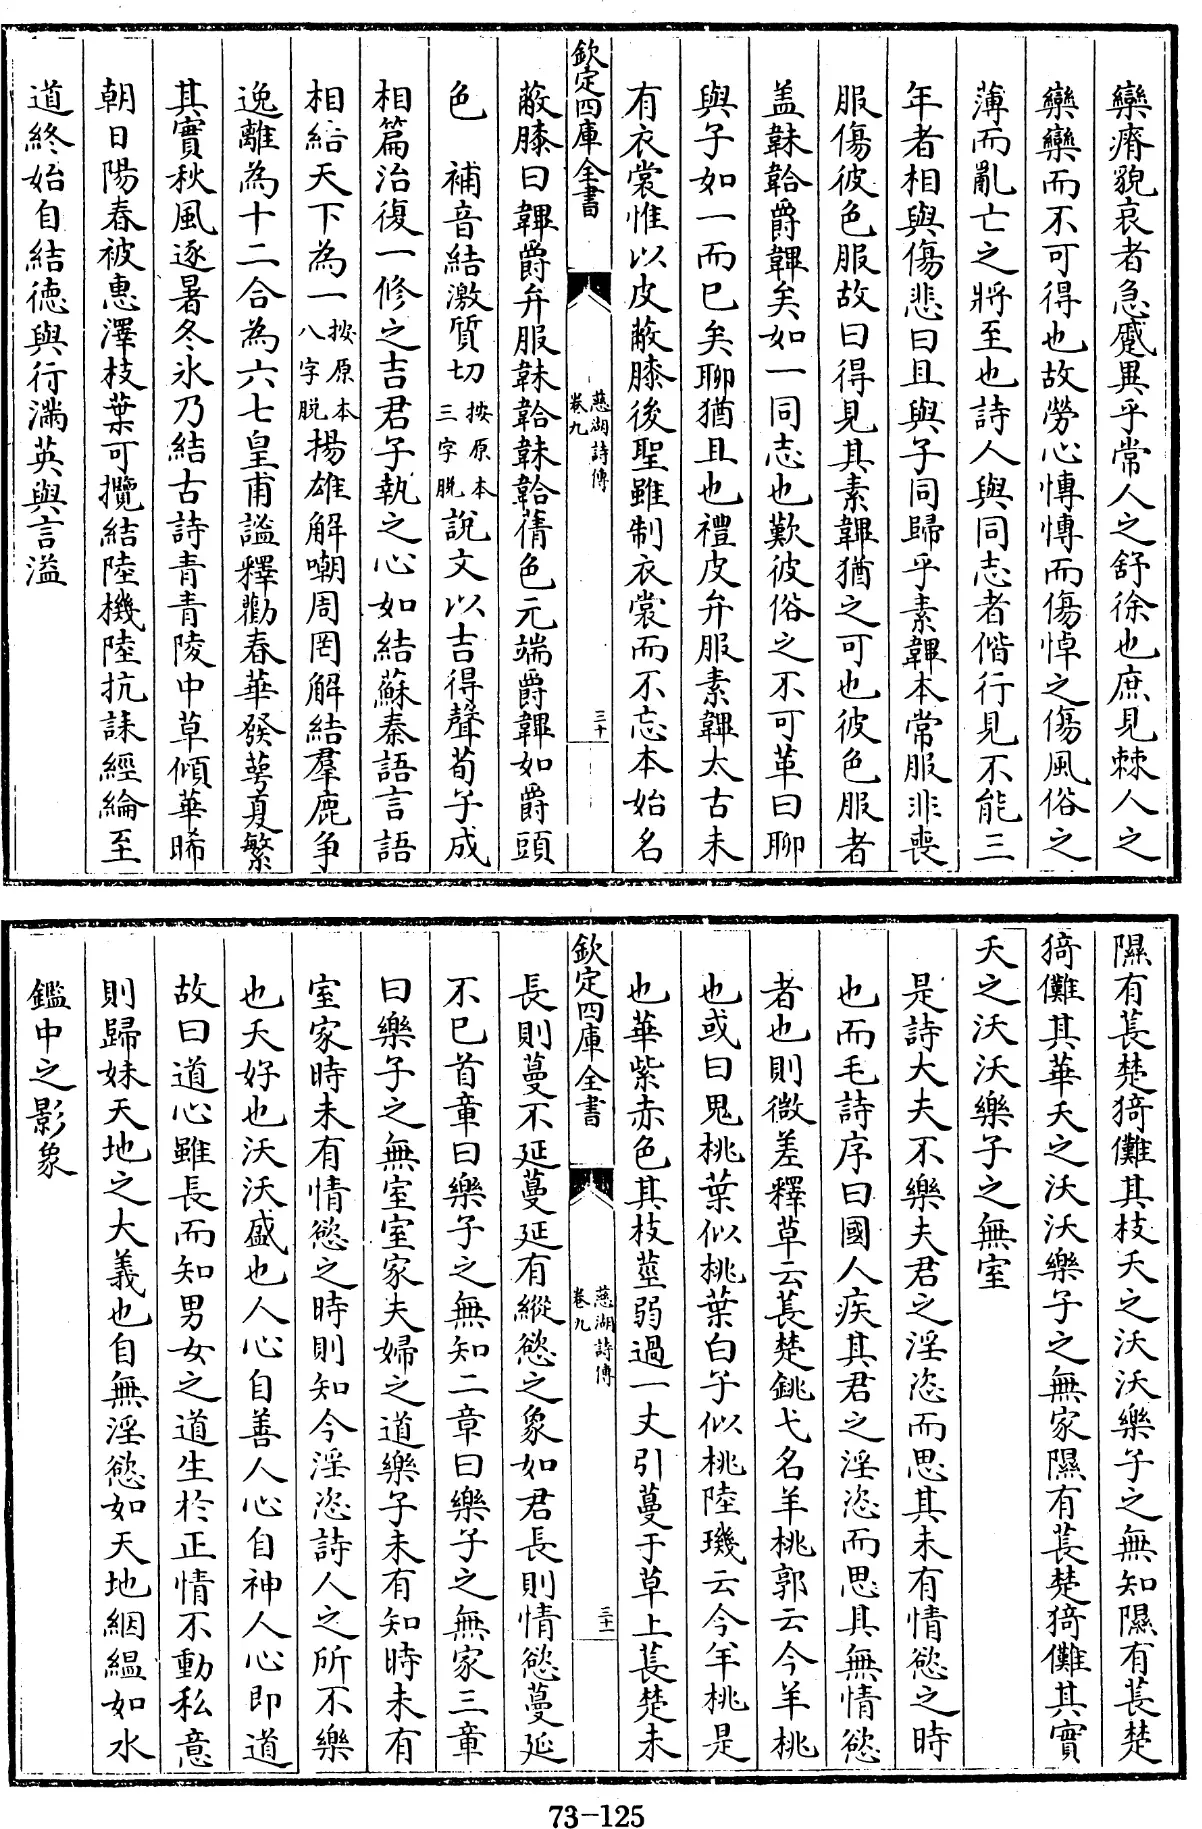 欒瘠貌哀者急蹙異乎常人之舒徐也庶見棘人之
欒欒而不可得也故勞心慱慱而傷悼之傷風俗之
薄而亂亡之將至也詩人與同志者偕行見不能三
年者相與傷悲曰且與子同歸乎素韠本常服非喪
服傷彼色服故曰得見其素韠猶之可也彼色服者
盖韎韐爵韠矣如一同志也歎彼俗之不可革曰聊
與子如一而已矣聊猶且也禮皮弁服素韠太古未
有衣裳惟以皮蔽膝後聖雖制衣裳而不忘本始名
欽定四庫全書
慈湖詩傳
卷九
三十
蔽膝曰韠爵弁服韎韐韎韐蒨色元端爵韠如爵頭
色 補音結激質切按原本三字脱說文以吉得聲荀子成
相篇治復一修之吉君子執之心如結蘇秦語言語
相結天下為一按原本八字脱揚雄解嘲周罔解結羣鹿争
逸離為十二合為六七皇甫謐釋勸春華發萼夏繁
其實秋風逐暑冬氷乃結古詩青青陵中草傾華晞
朝日陽春被惠澤枝葉可攬結陸機陸抗誄經綸至
道終始自結德與行滿英與言溢
隰有萇楚猗儺其枝夭之沃沃樂子之無知隰有萇楚
猗儺其華夭之沃沃樂子之無家隰有萇楚猗儺其實
夭之沃沃樂子之無室
是詩大夫不樂夫君之淫恣而思其未有情慾之時
也而毛詩序曰國人疾其君之淫恣而思其無情慾
者也則微差釋草云萇楚銚弋名羊桃郭云今羊桃
也或曰鬼桃葉似桃華白子似桃陸璣云今羊桃是
也華紫赤色其枝莖弱過一丈引蔓于草上萇楚未
欽定四庫全書
慈湖詩傳
卷九
三十一
長則蔓不延蔓延有縱慾之象如君長則情慾蔓延
不已首章曰樂子之無知二章曰樂子之無家三章
曰樂子之無室室家夫婦之道樂子未有知時未有
室家時未有情慾之時則知今淫恣詩人之所不樂
也夭好也沃沃盛也人心自善人心自神人心即道
故曰道心雖長而知男女之道生於正情不動私意
則歸妹天地之大義也自無淫慾如天地絪縕如水
鑑中之影象
73-125